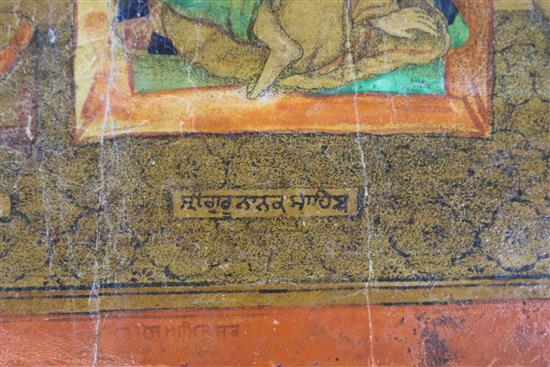 ਸ੍ਰੀ ਗੁਰੂ ਨਾਨਕ ਸਾਹਿਬ